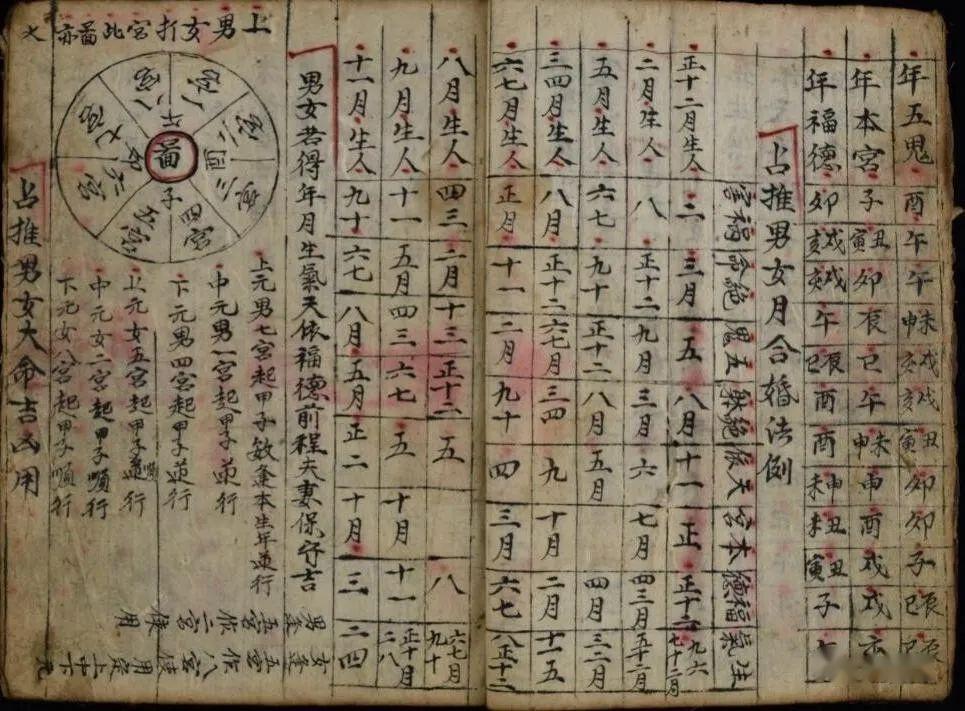 年五鬼 酉 午 午 未申 戌亥 戌亥 丑寅 卯 卯 子 辰巳
年本宮 子 丑寅 卯 辰 巳 午 未申 申 酉 戌 戌
年福德 卯 戌亥 戌亥 午 辰巳 酉 酉 申未 丑未 丑寅 子
占推男女月合婚法例
害禍 命絕 鬼五 骸絕 依天 宮本 德福 氣生
正十二月生人 二 三月 五 八月 十一 正 正十二 九六七十二月
二月生人 八 正十二 九月 三月 六 七月 四三月 五十二月
五月生人 六七 九十 正十二 八月 五月 四月 三二月
三四月生人 八月 正十二 六七月 三四 九 十月 二月 十一五
六七月生人 正月 十一 二月 九十 四 三月 六七 八正十二
八月生人 四三 二月 十三 正十二 五 八 六七月九十
九月生人 十一 五月 四三 六七 五 十月 十一 正十月二八
十一月生人 九十 六七 八月 五月 正二 十月 三 二四
男女若得年月生氣天依福德前程夫妻保守吉
上男女打宮此圖亦大
圖
子
四宮
五宮
六宮
七宮
八宮
上元男七宮起甲子数逢本生年逆行
中元男一宮起甲子逆行
下元男四宮起甲子逆行
上元女五宮起甲子順行
中元女二宮起甲子順行
下元女八宮起甲子順行
男逢五宮作二宮使用
女逢五宮作八宮使用定上中下元
占推男女大命吉凶用